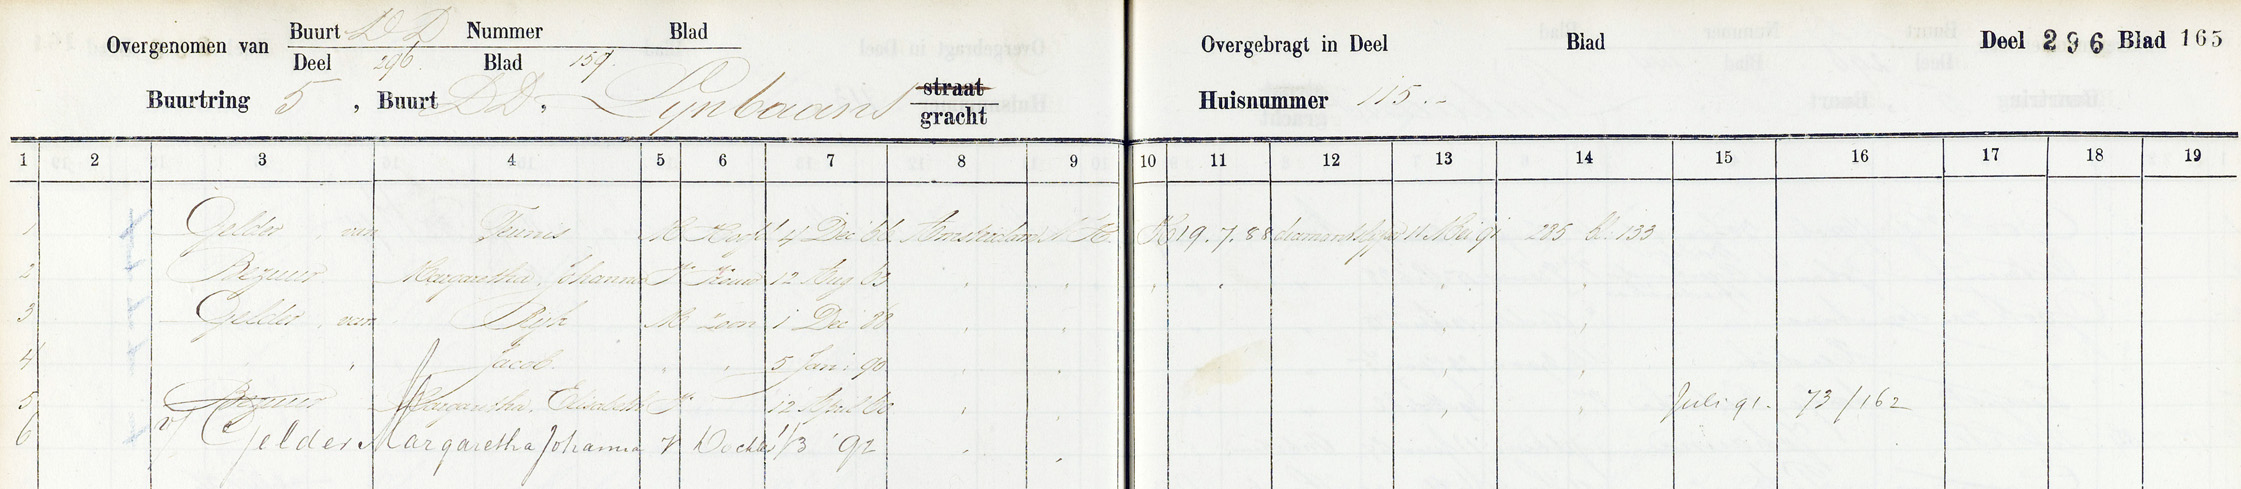 Overgenomen van Buurt DD Nummer Blad
Deel 296. Blad 159.
Buurtring 5, Buurt DD, Lijnbaans straat gracht
Overgebragt in Deel Blad Deel 296 Blad 165
Huisnummer 115.-
1 2 3 4 5 6 7 8 9 10 11 12 13 14 15 16 17 18 19
1 Gelder, van Teunis M Hoofd 4 Dec Amsterdam N.H. 19.7.88 11 Mei 91 285 bl. 133
2 Bezuur Margaretha Johanna V. 12 Aug 63
3 Gelder, van M Zoon 1 Dec 88
4 Jacob. 5 90
5 Bezuur Margaretha Elisabeth V. 12 April 60 Juli 91. 73/162
6 v Gelder Margaretha Johanna V Dochter 1/3 '92